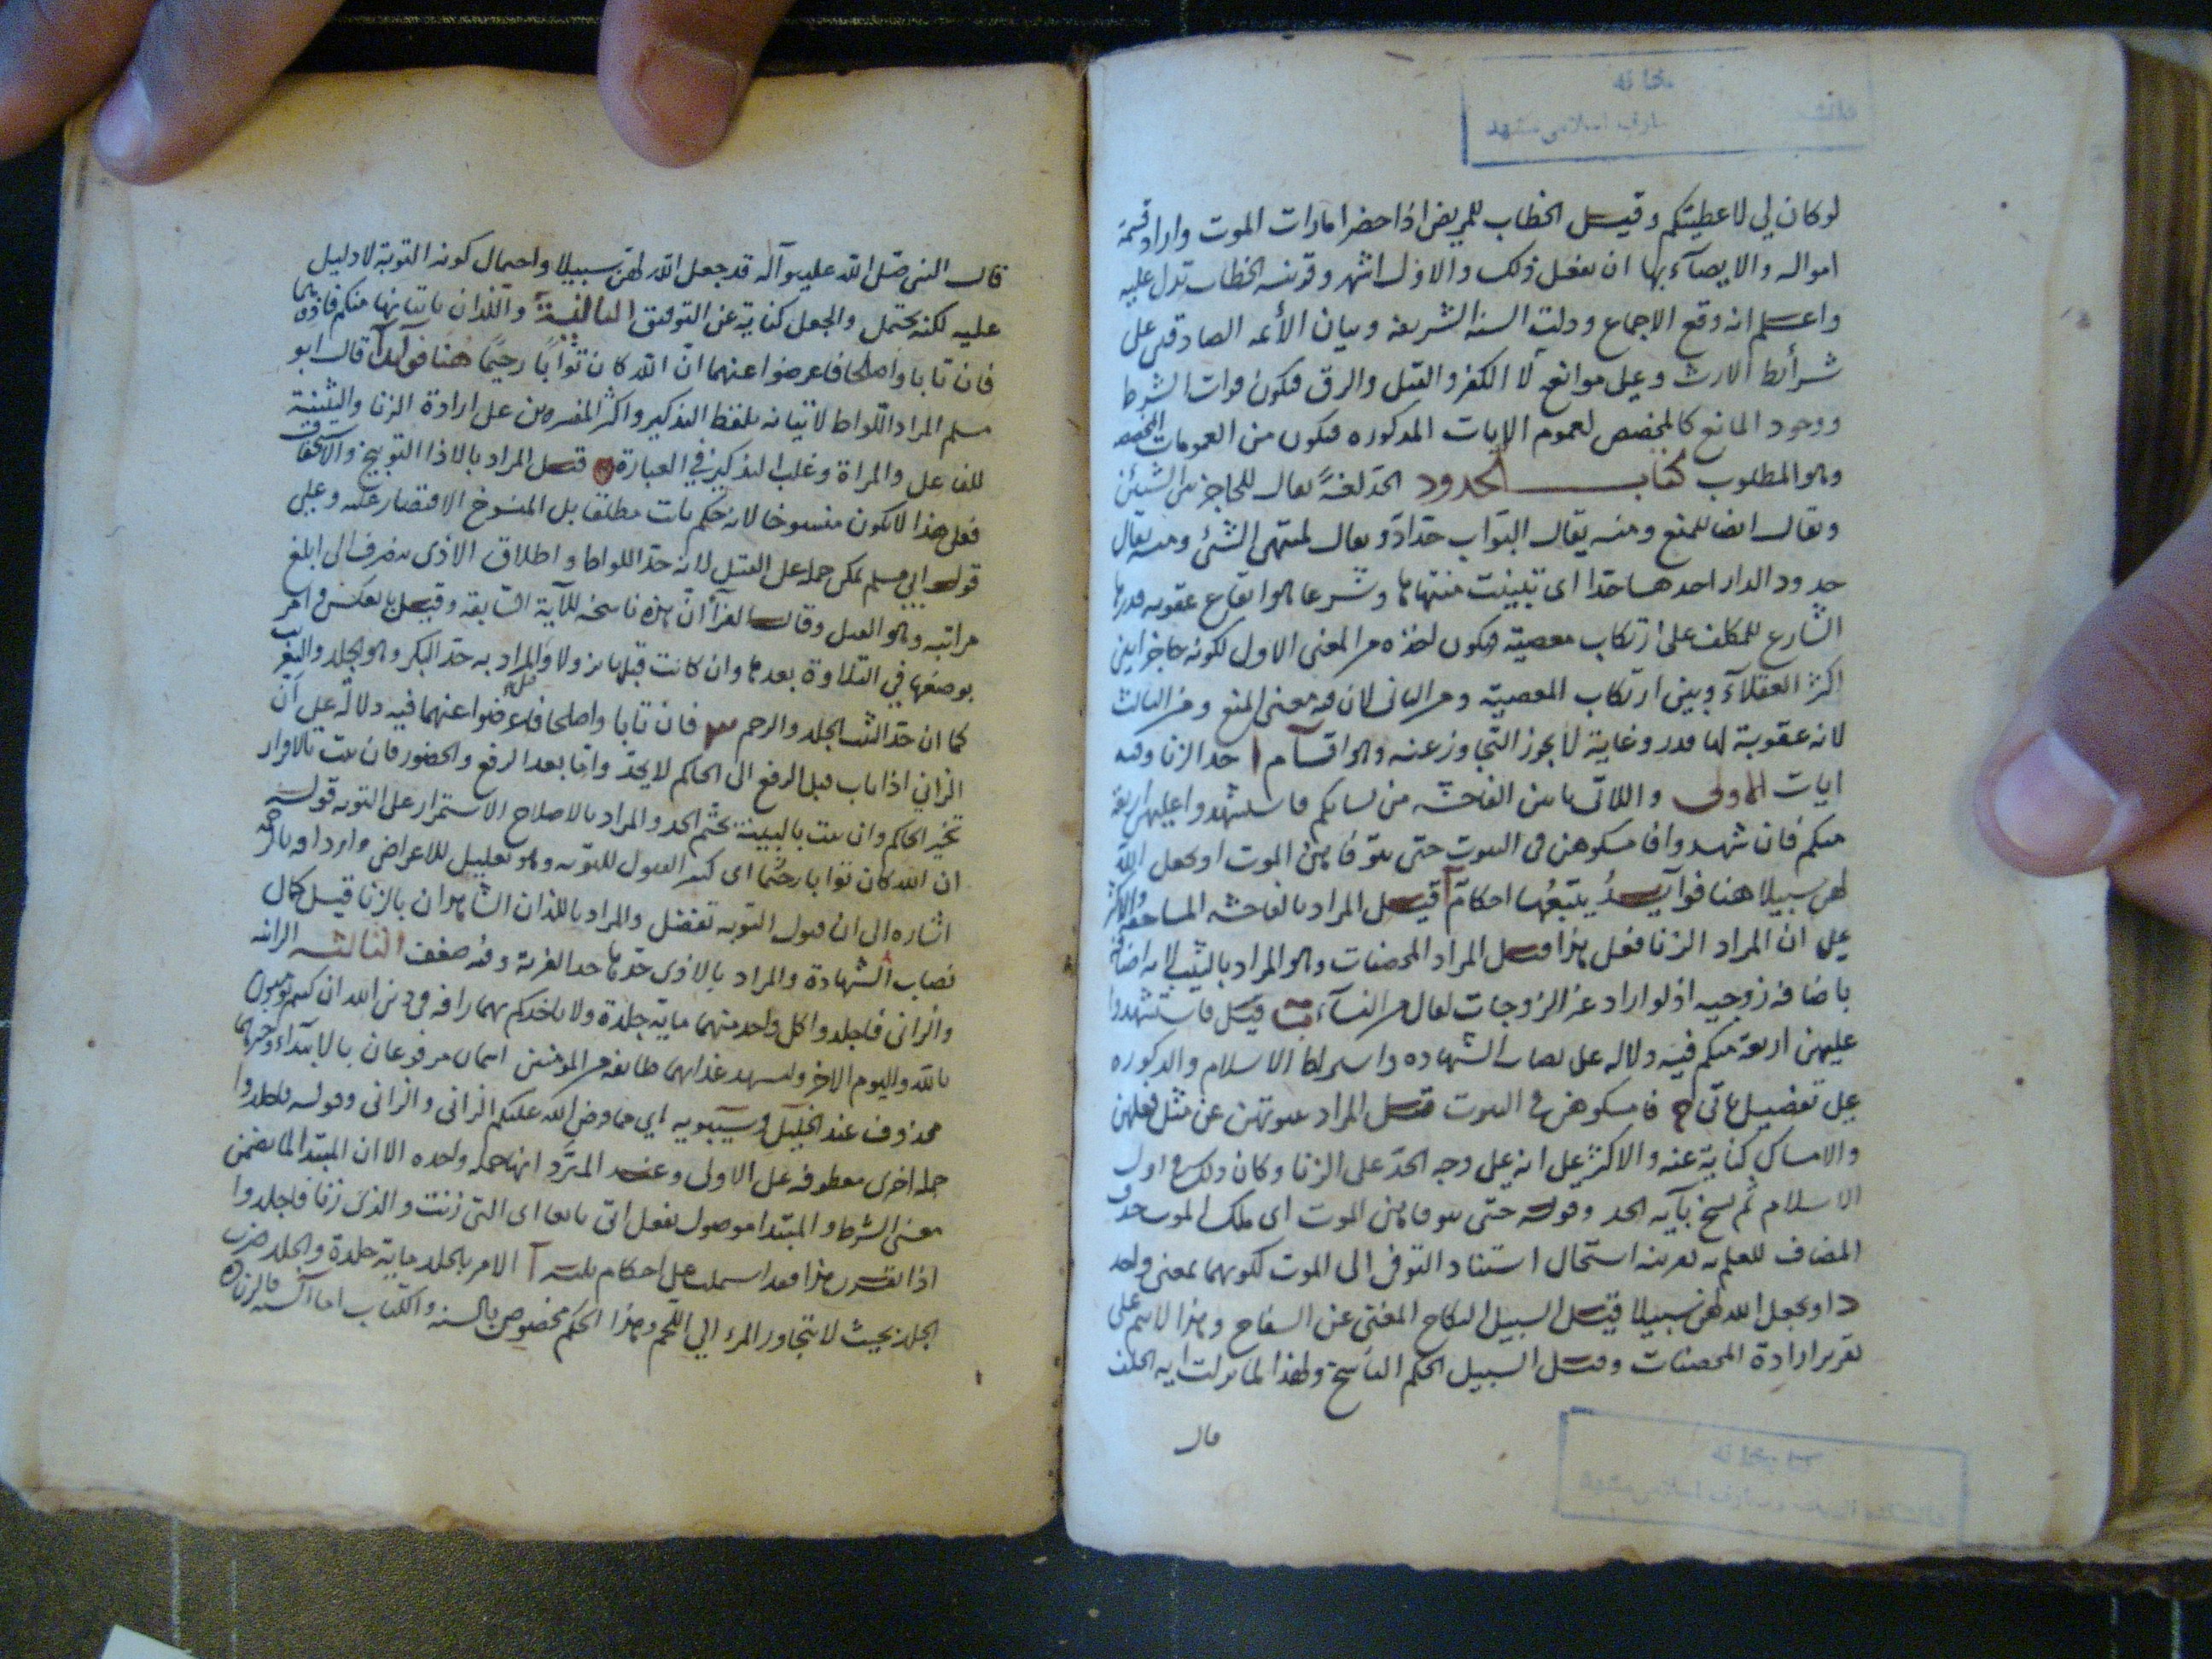 لو كان لي لاعطيتكم وقيل الخطاب للمريض اذا حضر امارات الموت واراد قسمة
امواله والايصآء بها ان يفعل ذلك والاول اشهر وقرينه الخطاب تدل عليه
واعلم انه وقع الاجماع ودلت السنه الشريفه وبيان الأئمه الصادقين على
شرأئط الارث وعلى موانعه لا الكفر والقتل والرق فيكون فوات الشرط
ووجود المانع كالمخصص لعموم الايات المذكوره فيكون من العمومات المخصصه
وهو المطلوب كتاب الحدود الحد لغةً يقال للحاجز بين الشيئين
ويقال ايضا للمنع ومنه يقال البّواب حدّاد ويقال لمنتهى الشئ ومنه يقال
حدود الدار احدها حدا اى تبينت منتهاها وشرعا هو ايقاع عقوبه قدرها
الشارع للمكلف على ارتكاب معصيته فيكون اخذه من المعنى الاول لكونه حاجزا بين
اكثر العقلآء وبين ارتكاب المعصية ومن الثانى لان فيه معنى المنع ومن الثالث
لانه عقوبة لها قدر وغاية لا يجوز التجاوز عنه وهو اقسام ا حد الزنا وفيه
ايات الاولى واللاتى ياتين الفاحشه من نسايكم فاستشهدوا عليهن اربعة
منكم فان شهدوا فامسكوهن فى البيوت حتى يتوفاهن الموت او يجعل الله
لهن سبيلا هنا فوآيد يتبعها احكام آ قيل المراد بالفاحشه المساحقه والاكثر
على ان المراد الزنا فعلى هذا قيل المراد المحصنات وهو المراد بالثيب لانه اضافة
باضافه زوجيه اذ لو اراد غير الزوجات لقال من النسآء ب قيل فاستشهدوا
عليهن اربعة منكم فيه دلاله على نصاب الشهاده واشتراط الاسلام والذكوره
على تفصيل ياتى ج فامسكوهن فى البيوت قيل المراد صونهن عن مثل فعلهن
والامساك كناية عنه والاكثر على انه على وجه الحدّ على الزنا وكان ذلك فى اول
الاسلام ثم نسخ بآيه الحد وقوله حتى يتوفاهن الموت اى ملك الموت حذف
المضاف للعلم به لقرينه استحال استناد التوفى الى الموت لكونهما بمعنى واحد
د او يجعل الله لهن سبيلا قيل السبيل النكاح المغنى عن السفاح وهذا لا يتم على
تقرير ارادة المحصنات وقيل السبيل الحكم الناسخ ولهذا لما نزلت ايه الجلد
قال
قال النبى صلى الله عليه وآله قد جعل الله لهن سبيلا واحمال كونه التوبة لا دليل
عليه لكنه يحتمل والجعل كناية عن التوفيق الثانية واللذان ياتيانها منكم فاذوهما
فان تابا واصلحا فاعرضوا عنهما ان الله كان توّابًا رحيمًا هنا فوآيد آ قال ابو
مسلم المراد اللّواط لاتيانه بلفظ التذكير واكثر المفسرين على ارادة الزنا والتثنية
للفاعل والمراة وغلب التذكير فى العبارة ب قيل المراد بالاذا التوبيخ والاستخفاف
فعلى هذا لا يكون منسوخا لانه حكم ثابت مطلقا بل المنسوخ الاقتصار عليه وعلى
قول ابى مسلم يمكن حمله على القتل لانه حدّ اللواط واطلاق الاذى ينصرف الى ابلغ
مراتبه وهو القتل وقال الفرّآ انّ هذه ناسخه للآية السّابقه وقيل بالعكس وامر
بوضعها في التلاوة بعدها وان كانت قبلها نزولا والمراد به حدّ البكر وهو الجلد والتغريب
كما ان حدّ الثيب الجلد والرجم فان تابا واصلحا فاعرضوا عنهما فيه دلالة على ان
الزانى اذا تاب قبل الرفع الى الحاكم لا يحدّ وامّا بعد الرفع والحضور فان ثبت بالاقرار
تخير الحاكم وان ثبت بالبينة تحتّم الحد والمراد بالاصلاح الاستمرار على التوبه قوله
ان الله كان توابا رحيمًا اى كثير القبول للتوبه وهو تعليل للاعراض وارداف بالرحمة
اشاره الى ان قبول التوبه تفضل والمراد باللذان الشاهدان بالزنا قيل كمال
نصاب الشهادة والمراد بالاذى حدّهما حد الفرية وفيه ضعف الثالثه الزانيه
والزانى فاجلدوا كل واحد منهما ماية جلدة ولا ياخذكم بهما رافه فى دين الله ان كنتم تؤمنون
بالله واليوم الاخر وليشهد عذابهما طايفه من المؤمنين اسمان مرفوعان بالابتداء وخبرهما
محذوف عند الخليل وسيبويه اي مما فرض الله عليكم الزانى والزانى وقوله فاجلدوا
جمله اخرى معطوفه على الاولى وعند المبرّد انهما جمله واحده الا ان المبتدا لما تضمن
معنى الشرط والمبتدا موصول بفعل اتى بالفا اى التى زنت والذى زنا فاجلدوا
اذا تقرر هذا فقد اشتملت على احكام ثلثه آ الامر بالجلد ماية جلدة والجلد ضرب
الجلد بحيث لا يتجاوز المر الى اللحم وهذا الحكم مخصوص بالسنه والكتاب اما السنه فالزنا